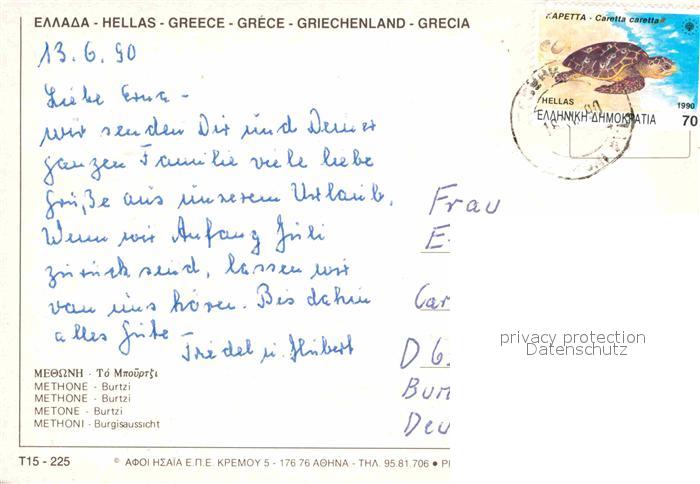 ΕΛΛΑΔΑ - HELLAS - GREECE - GRÉCE - GRIECHENLAND - GRECIA
ΚΑΡΕΤΤΑ - Caretta caretta
HELLAS
1990
ΕΛΛΗΝΙΚΗ ΔΗΜΟΚΡΑΤΙΑ
70
13.6.90
Liebe Erna -
wir senden Dir und Deiner
ganzen Familie viele liebe
Grüße aus unserem Urlaub.
Wenn wir Anfang Juli
zurück sind, lassen wir
von uns hören. Bis dahin
alles Gute -
Friedel u. Hubert
Frau
E.
Car
D 6
Bur
Deu
privacy protection
Datenschutz
ΜΕΘΩΝΗ - Τό Μπούρτζι
METHONE - Burtzi
METHONE - Burtzi
METONE - Burtzi
METHONI - Burgisaussicht
T15 - 225
© ΑΦΟΙ ΗΣΑΪΑ Ε.Π.Ε. ΚΡΕΜΟΥ 5 - 176 76 ΑΘΗΝΑ - ΤΗΛ. 95.81.706 ●